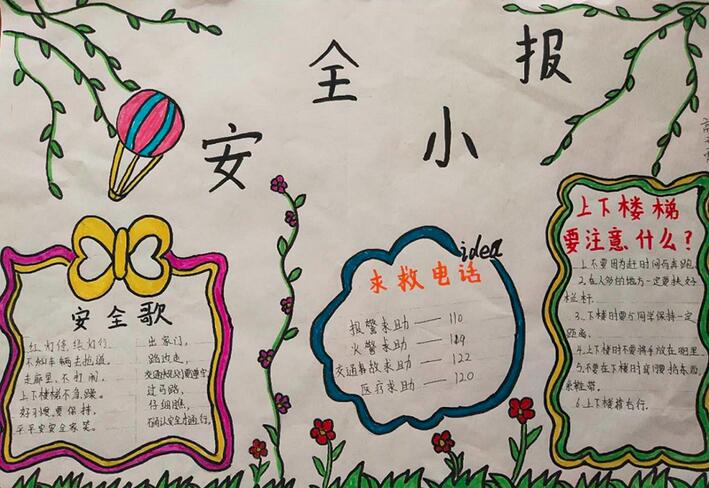 安全小报
安全歌
红灯停,绿灯行,
不如车辆去抢道。
走廊里,不打闹,
上下楼梯不急躁。
好习惯,要保持,
平平安安全家笑。
出家门,
路边走,
交通规则要遵守,
过马路,
仔细瞧,
确认安全才通行。
idea
求救电话
报警求助——110
火警求助——119
交通事故求助——122
医疗求助——120
上下楼梯
要注意什么?
1.不要因为赶时间而奔跑。
2.在人多的地方一定要扶好
栏杆.
3.下楼时要与同学保持一定
距离.
4.上下楼时不要将手放在
5.不要在下楼时
鞋带.
6.上下楼梯靠右行.